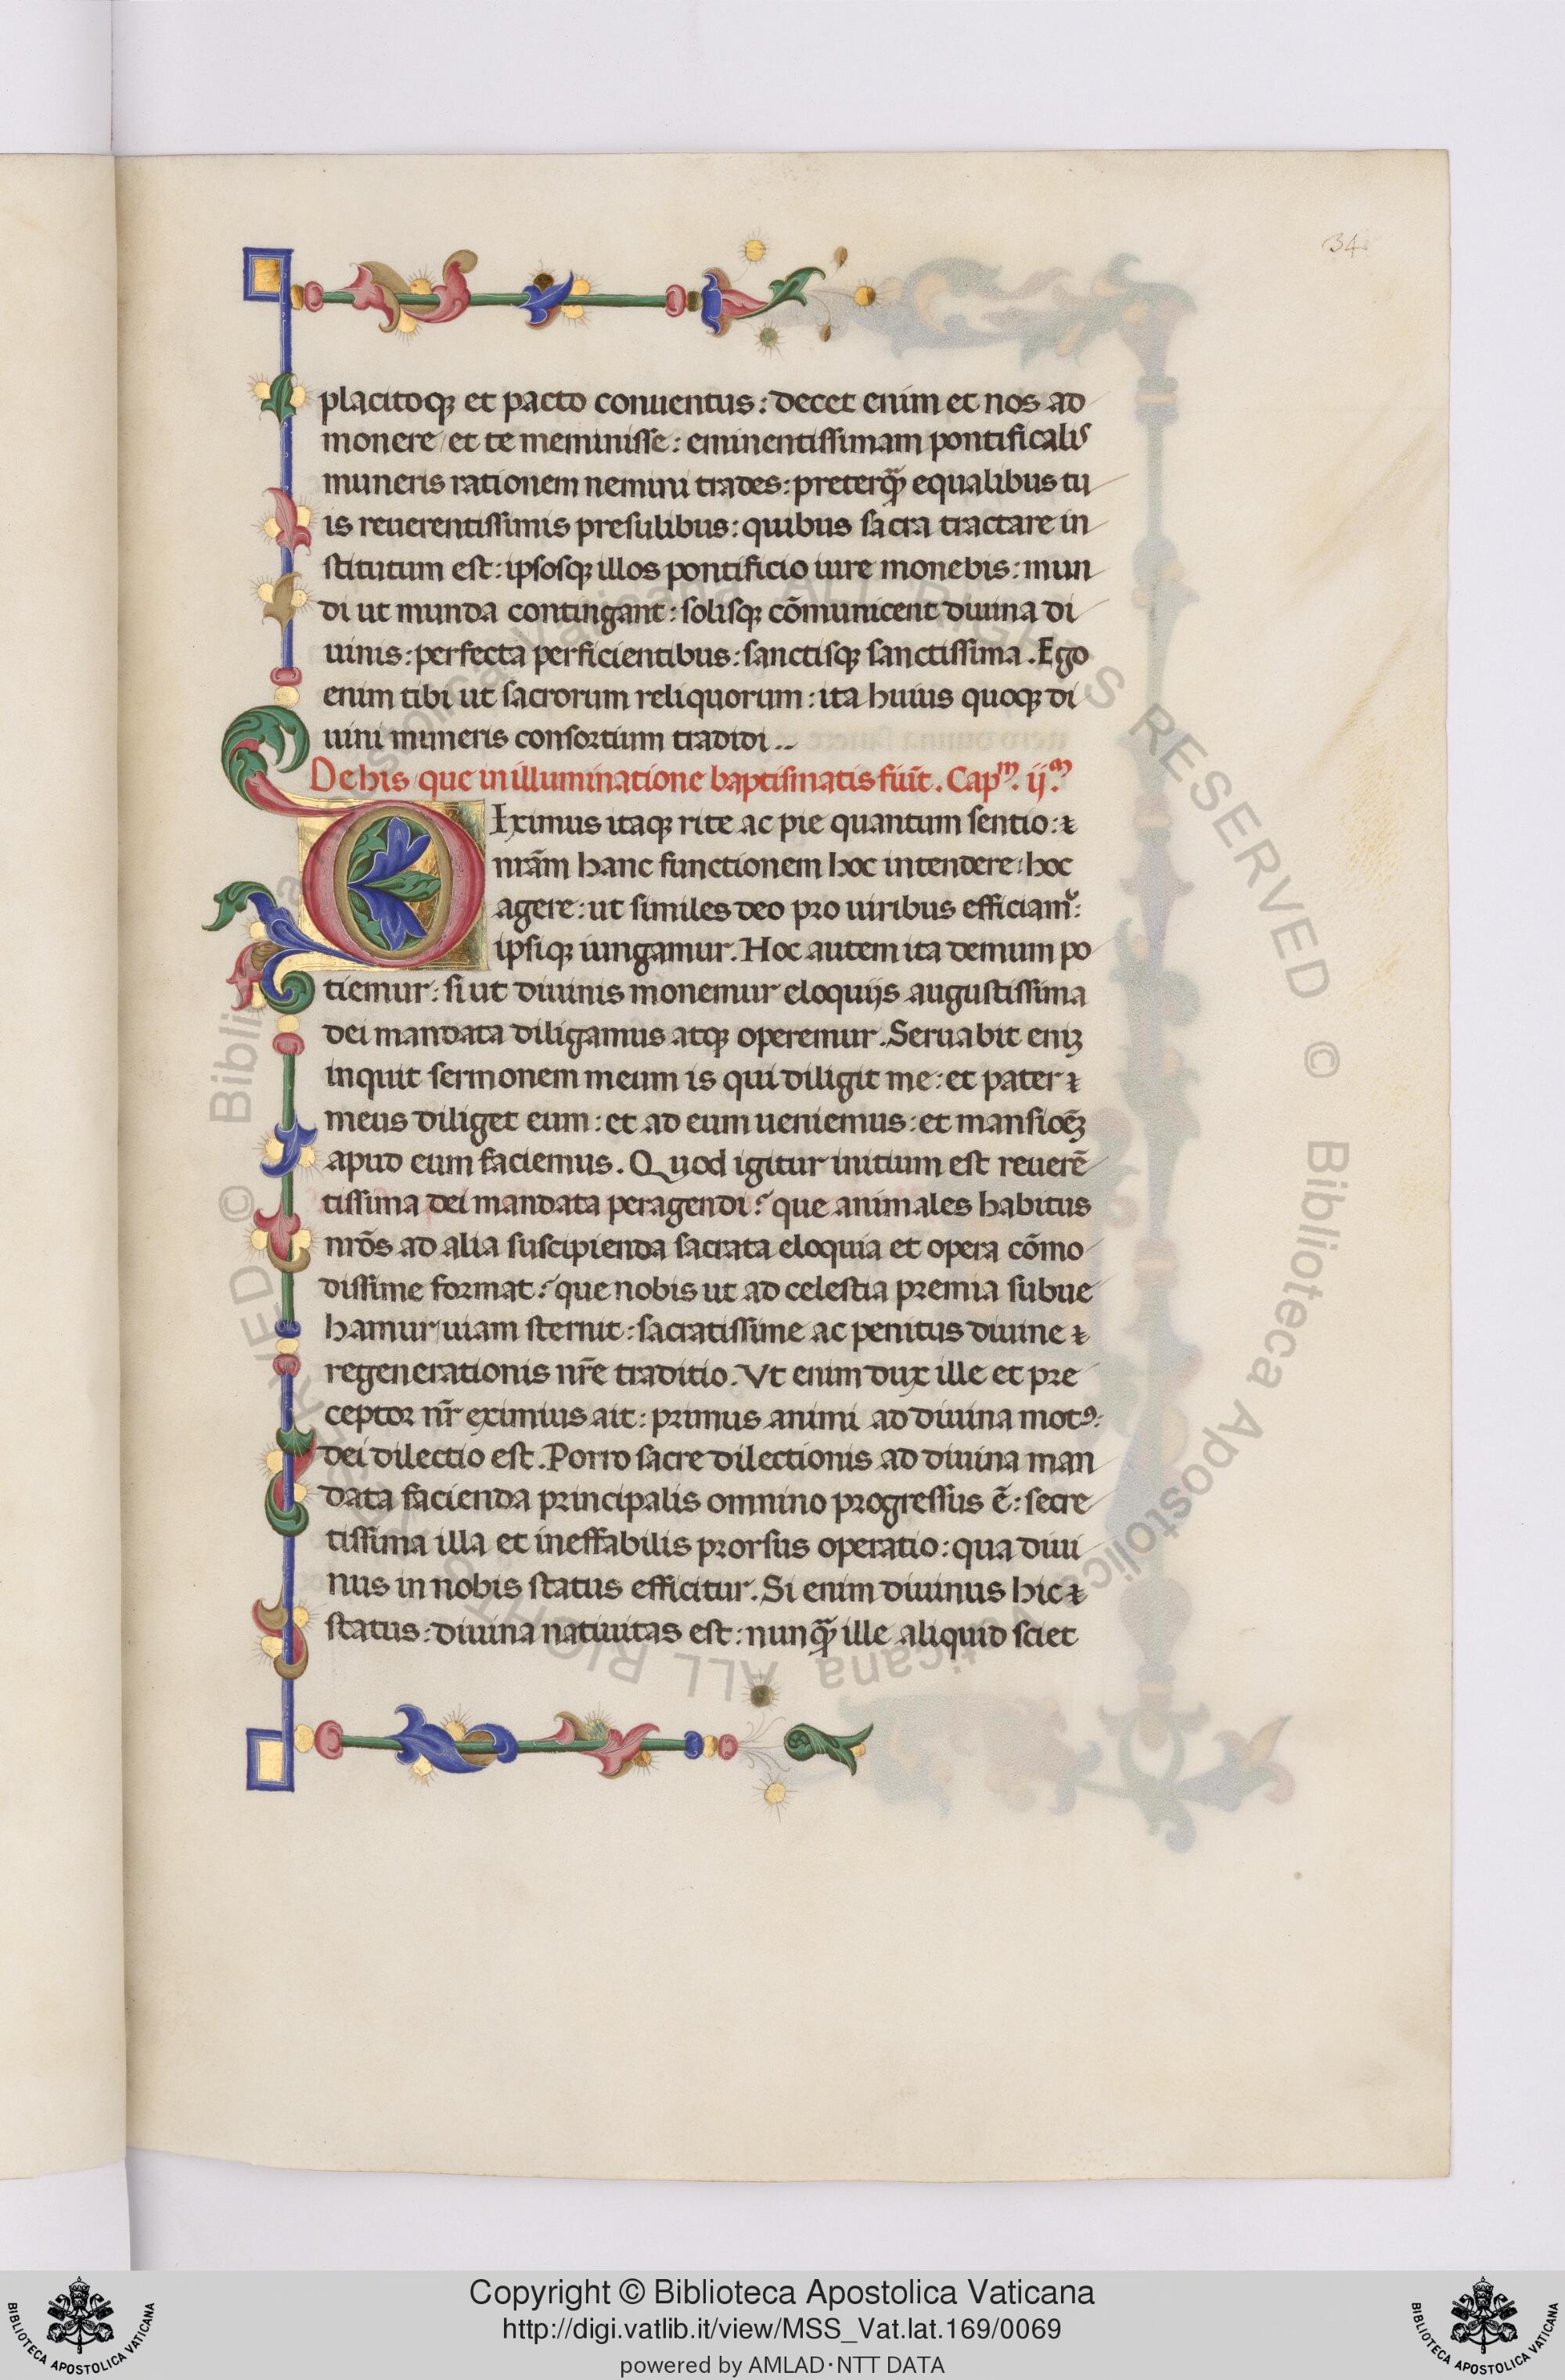 34
placitoqꝫ et pacto conuentus: decet enim et nos ad
monere/et te meminisse: eminentissimam pontificalis
muneris rationem nemini trades: preterqꝫ̃ equalibus tu
is reuerentissimis presulibus: quibus sacra tractare in
stitutum est: ipsosqꝫ illos pontificio iure monebis: mun
di ut munda contingant: solisqꝫ cõmunicent diuina di
uinis: perfecta perficientibus: sanctisqꝫ sanctissima. Ego
enim tibi ut sacrorum reliquorum: ita huius quoqꝫ di
uini muneris consortium tradidi..
De his/que in illuminatione baptismatis fiũt. Capᵐ. ijᵐ
DIximus itaqꝫ rite ac pie quantum sentio:
nrãm hanc functionem hoc intendere: hoc
agere: ut similes deo pro uiribus efficiamᷣ:
ipsiqꝫ iungamur. Hoc autem ita demum po
tiemur: si ut diuinis monemur eloquijs augustissima
dei mandata diligamus atqꝫ operemur. Seruabit eniꝫ
inquit sermonem meum is qui diligit me: et pater
meus diliget eum: et ad eum ueniemus: et mansioẽꝫ
apud eum faciemus. Quod igitur initium est reuerẽ
tissima dei mandata peragendi? que animales habitus
nrõs ad alia suscipienda sacrata eloquia et opera cõmo
dissime format? que nobis ut ad celestia premia subue
hamur/uiam sternit: sacratissime ac penitus diuine
regenerationis nrẽ traditio. Vt enim dux ille et pre
ceptor nr̃ eximius ait: primus animi ad diuina motꝰ:
dei dilectio est. Porro sacre dilectionis ad diuina man
data facienda principalis omnino progressus ẽ: secre
tissima illa et ineffabilis prorsus operatio: qua diui
nus in nobis status efficitur. Si enim diuinus hic
status: diuina natiuitas est: nunqꝫ̃ ille aliquid sciet
© Biblioteca Apostolica Vaticana ALL RIGHTS RESERVED © Biblioteca Apostolica Vaticana ALL RIGHTS RESERVED
BIBLIOTECA APOSTOLICA VATICANA
Copyright © Biblioteca Apostolica Vaticana
http://digi.vatlib.it/view/MSS_Vat.lat.169/0069
powered by AMLAD·NTT DATA
BIBLIOTECA APOSTOLICA VATICANA